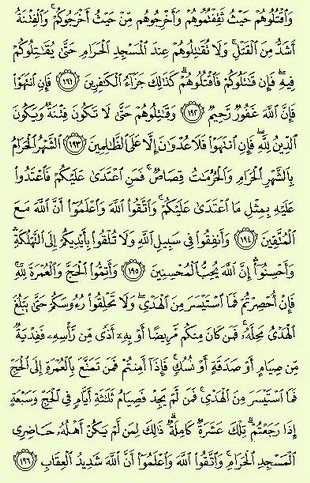 وَاقْتُلُوهُمْ حَيْثُ ثَقِفْتُمُوهُمْ وَأَخْرِجُوهُم مِّنْ حَيْثُ أَخْرَجُوكُمْ ۚ وَالْفِتْنَةُ
أَشَدُّ مِنَ الْقَتْلِ ۚ وَلَا تُقَاتِلُوهُمْ عِندَ الْمَسْجِدِ الْحَرَامِ حَتَّىٰ يُقَاتِلُوكُمْ
فِيهِ ۖ فَإِن قَاتَلُوكُمْ فَاقْتُلُوهُمْ ۗ كَذَٰلِكَ جَزَاءُ الْكَافِرِينَ ﴿١٩١﴾ فَإِنِ انتَهَوْا
فَإِنَّ اللَّهَ غَفُورٌ رَّحِيمٌ ﴿١٩٢﴾ وَقَاتِلُوهُمْ حَتَّىٰ لَا تَكُونَ فِتْنَةٌ وَيَكُونَ
الدِّينُ لِلَّهِ ۖ فَإِنِ انتَهَوْا فَلَا عُدْوَانَ إِلَّا عَلَى الظَّالِمِينَ ﴿١٩٣﴾ الشَّهْرُ الْحَرَامُ
بِالشَّهْرِ الْحَرَامِ وَالْحُرُمَاتُ قِصَاصٌ ۚ فَمَنِ اعْتَدَىٰ عَلَيْكُمْ فَاعْتَدُوا
عَلَيْهِ بِمِثْلِ مَا اعْتَدَىٰ عَلَيْكُمْ ۚ وَاتَّقُوا اللَّهَ وَاعْلَمُوا أَنَّ اللَّهَ مَعَ
الْمُتَّقِينَ ﴿١٩٤﴾ وَأَنفِقُوا فِي سَبِيلِ اللَّهِ وَلَا تُلْقُوا بِأَيْدِيكُمْ إِلَى التَّهْلُكَةِ ۛ
وَأَحْسِنُوا ۛ إِنَّ اللَّهَ يُحِبُّ الْمُحْسِنِينَ ﴿١٩٥﴾ وَأَتِمُّوا الْحَجَّ وَالْعُمْرَةَ لِلَّهِ ۚ
فَإِنْ أُحْصِرْتُمْ فَمَا اسْتَيْسَرَ مِنَ الْهَدْيِ ۖ وَلَا تَحْلِقُوا رُءُوسَكُمْ حَتَّىٰ يَبْلُغَ
الْهَدْيُ مَحِلَّهُ ۚ فَمَن كَانَ مِنكُم مَّرِيضًا أَوْ بِهِ أَذًى مِّن رَّأْسِهِ فَفِدْيَةٌ
مِّن صِيَامٍ أَوْ صَدَقَةٍ أَوْ نُسُكٍ ۚ فَإِذَا أَمِنتُمْ فَمَن تَمَتَّعَ بِالْعُمْرَةِ إِلَى الْحَجِّ
فَمَا اسْتَيْسَرَ مِنَ الْهَدْيِ ۚ فَمَن لَّمْ يَجِدْ فَصِيَامُ ثَلَاثَةِ أَيَّامٍ فِي الْحَجِّ وَسَبْعَةٍ
إِذَا رَجَعْتُمْ ۗ تِلْكَ عَشَرَةٌ كَامِلَةٌ ۗ ذَٰلِكَ لِمَن لَّمْ يَكُنْ أَهْلُهُ حَاضِرِي
الْمَسْجِدِ الْحَرَامِ ۚ وَاتَّقُوا اللَّهَ وَاعْلَمُوا أَنَّ اللَّهَ شَدِيدُ الْعِقَابِ ﴿١٩٦﴾